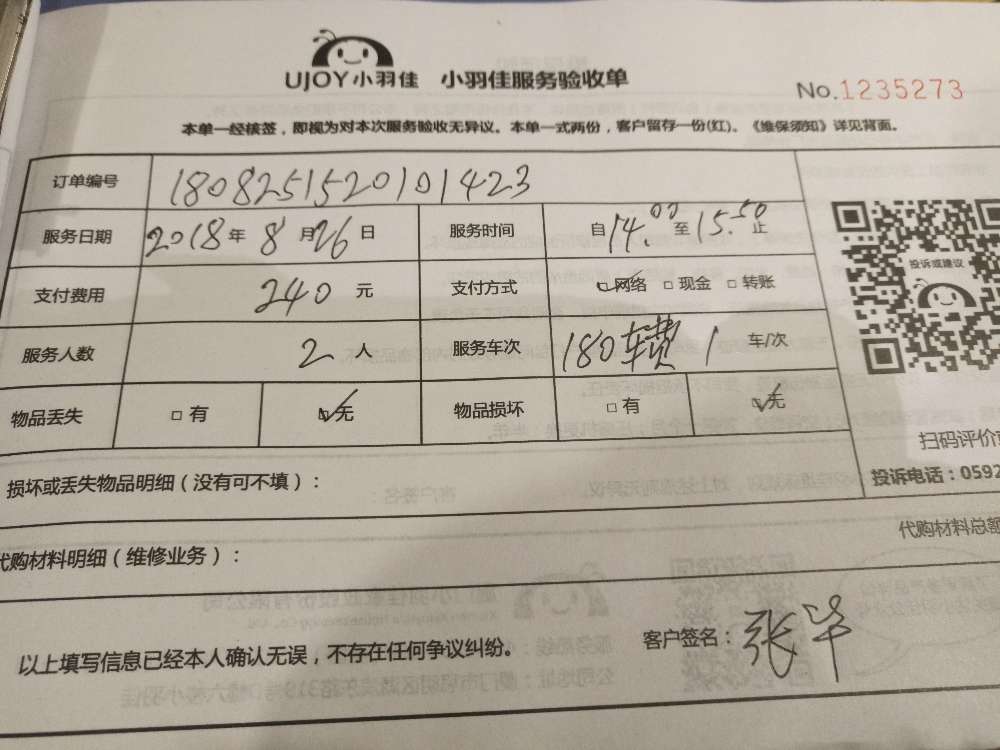 UJOY小羽佳 小羽佳服务验收单
No.1235273
本单一经核签，即视为对本次服务验收无异议。本单一式两份，客户留存一份(红)。《维保须知》详见背面。
订单编号 1808251520101423
服务日期 2018年 8月26日 服务时间 自14.00至15.50止
支付费用 240 元 支付方式 ☑网络 □现金 □转账
投诉或建议
服务人数 2 人 服务车次 180车费 1 车/次
物品丢失 □有 ☑无 物品损坏 □有 ☑无
扫码评价
损坏或丢失物品明细（没有可不填）：
投诉电话：0592
代购材料明细（维修业务）：
代购材料总额
以上填写信息已经本人确认无误，不存在任何争议纠纷。
客户签名：张华